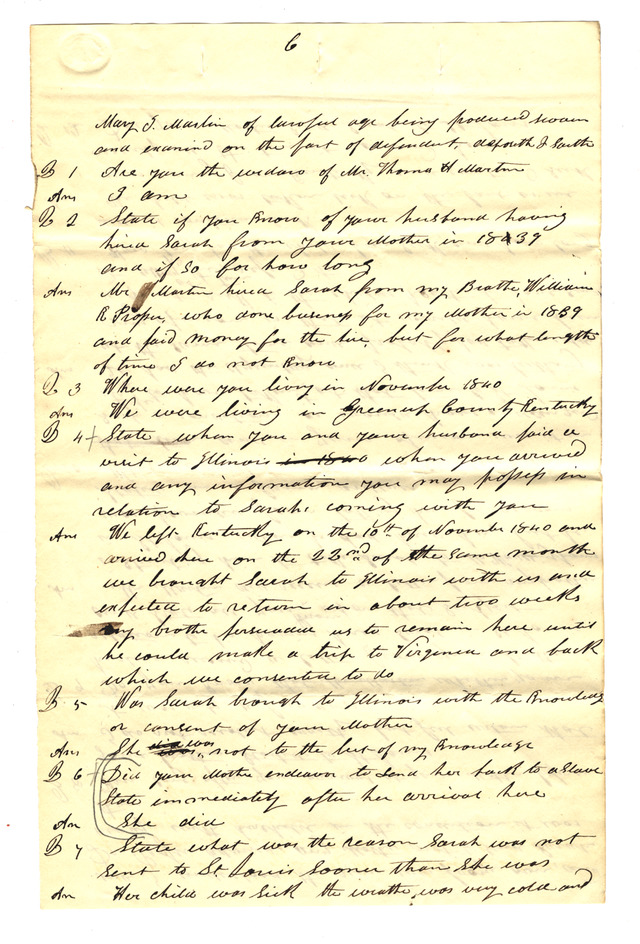 6
Mary E. Martin of lawful age being produced sworn
and examined on the part of defendant deposeth & saith
Q 1 Are you the widow of Mr. Thomas H Martin
Ans I am
Q 2 State if you Know of your husband having
hired Sarah from your Mother in 1839
and if so for how long
Ans Mr Martin hired Sarah from my Brother, William
R Propes, who done buseness for my Mother in 1839
and paid money for the hire, but for what length
of time I do not Know
Q 3 Where were you living in November 1840
Ans We were living in Greenup County Kentucky
Q 4 State when you and your husband paid a
visit to Illinois in 1840 when you arrived
and any information you may possess in
relation to Sarahs coming with you
Ans We left Kentucky on the 10th of November 1840 and
arrived here on the 22nd of the same month
we brought Sarah to Illinois with us and
expected to return in about two weeks
my brothe persuaded us to remain here until
he could make a trip to Virginia and back
which we consented to do
Q 5 Was Sarah brough to Illinois with the Knowledge
or consent of your Mother
Ans She was not to the best of my Knowledge
Q 6 Did your Mother endeavor to send her back to a Slave
State immediately after her arrival here
An She did
Q 7 State what was the reason Sarah was not
sent to St. Louis sooner than She was
An Her child was Sick the weathe was very cold and